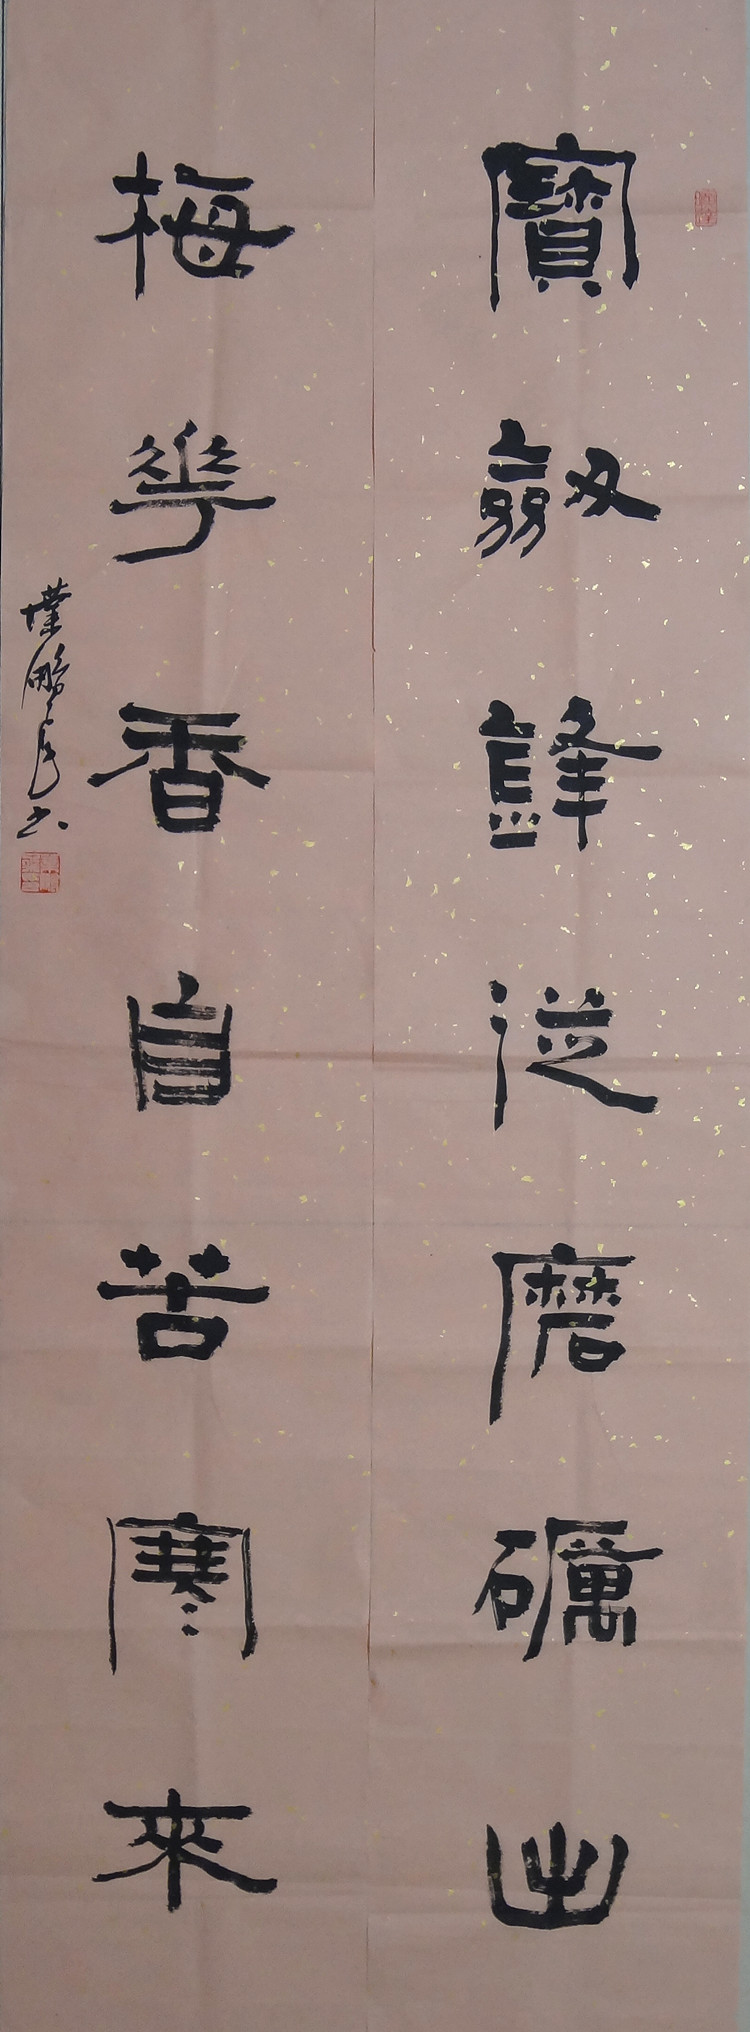 寶劔鋒從磨礪出
梅花香自苦寒來